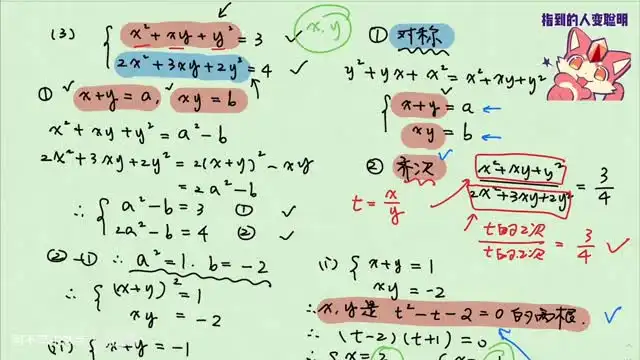 指到的人变聪明
(3) { x² + xy + y² = 3 ✓
2x² + 3xy + 2y² = 4 ✓
x, y
① x+y = a, xy = b
x² + xy + y² = a² - b
2x² + 3xy + 2y² = 2(x+y)² - xy
= 2a² - b
∴ { a² - b = 3 ① ✓
2a² - b = 4 ② ✓
② - ① ∴ a² = 1. b = -2
∴ { (x+y)² = 1
xy = -2
(ii) { x+y = -1
① 对称
y² + yx + x² = x² + xy + y²
{ x+y = a ←
xy = b ←
② 齐次 ✓
x²+xy+y² / 2x²+3xy+2y² = 3/4
t = x/y
t的2次 / t的2次 = 3/4 ✓
(i) { x+y = 1
xy = -2
∴ x, y 是 t² - t - 2 = 0 的两根. ✓
∴ (t-2)(t+1) = 0